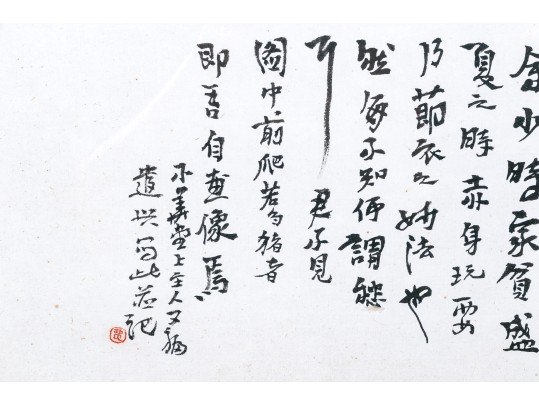 余少時家貧盛
夏之時赤身玩耍
乃節衣之妙法也
然每不知何謂
耳 君不見
圖中前爬若猪者
即吾自画像焉
堂上主人又
遣兴写此并记